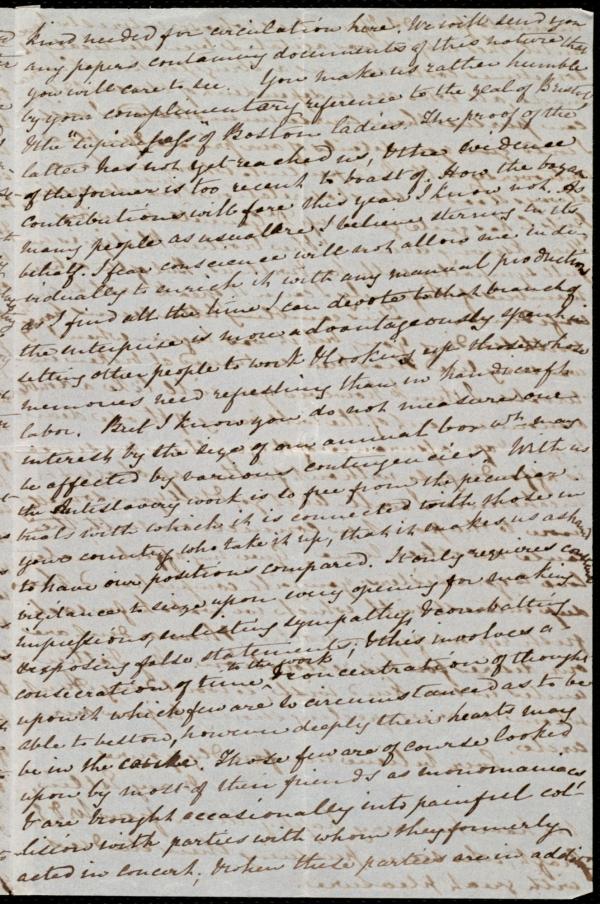 kind needed for circulation here. We will send you
any papers containing documents of this nature that
you will care to see. You make us rather humble
by your complimentary reference to the zeal of Bristol
& the "lapis" of Boston ladies. The proof of the
latter has not yet reached us, & the evidence
of the former is too recent to boast of. How the bazaar
contributions will fare this year I know not. As
many people as usual are I believe stirring in its
behalf. I fear conscience will not allow me indi-
vidually to enrich it with any manual productions
as I find all the time I can devote to that branch of
the enterprise is more advantageously spent in
setting other people to work & looking up those whose
memories need refreshing than in handicraft
labor. But I know you do not measure our
interest by the size of our annual box wh. may
be affected by various contingencies. With us
the Antislavery work is so free from the peculiar
trials with which it is connected with those in
your country who take it up, that it makes us ashamed
to have our positions compared. It only requires constant
vigilance to seize upon every opening for making
impressions, enlisting sympathy, & combatting
& exposing false statements; & this involves a
consecration of time to the work & concentration of thought
upon it which few are so circumstanced as to be
able to bestow, however deeply their hearts may
be in the cause. Those few are of course looked
upon by most of their friends as monomaniacs
& are brought occasionally into painful col-
lision with parties with whom they formerly
acted in concert; & when these parties are in addition